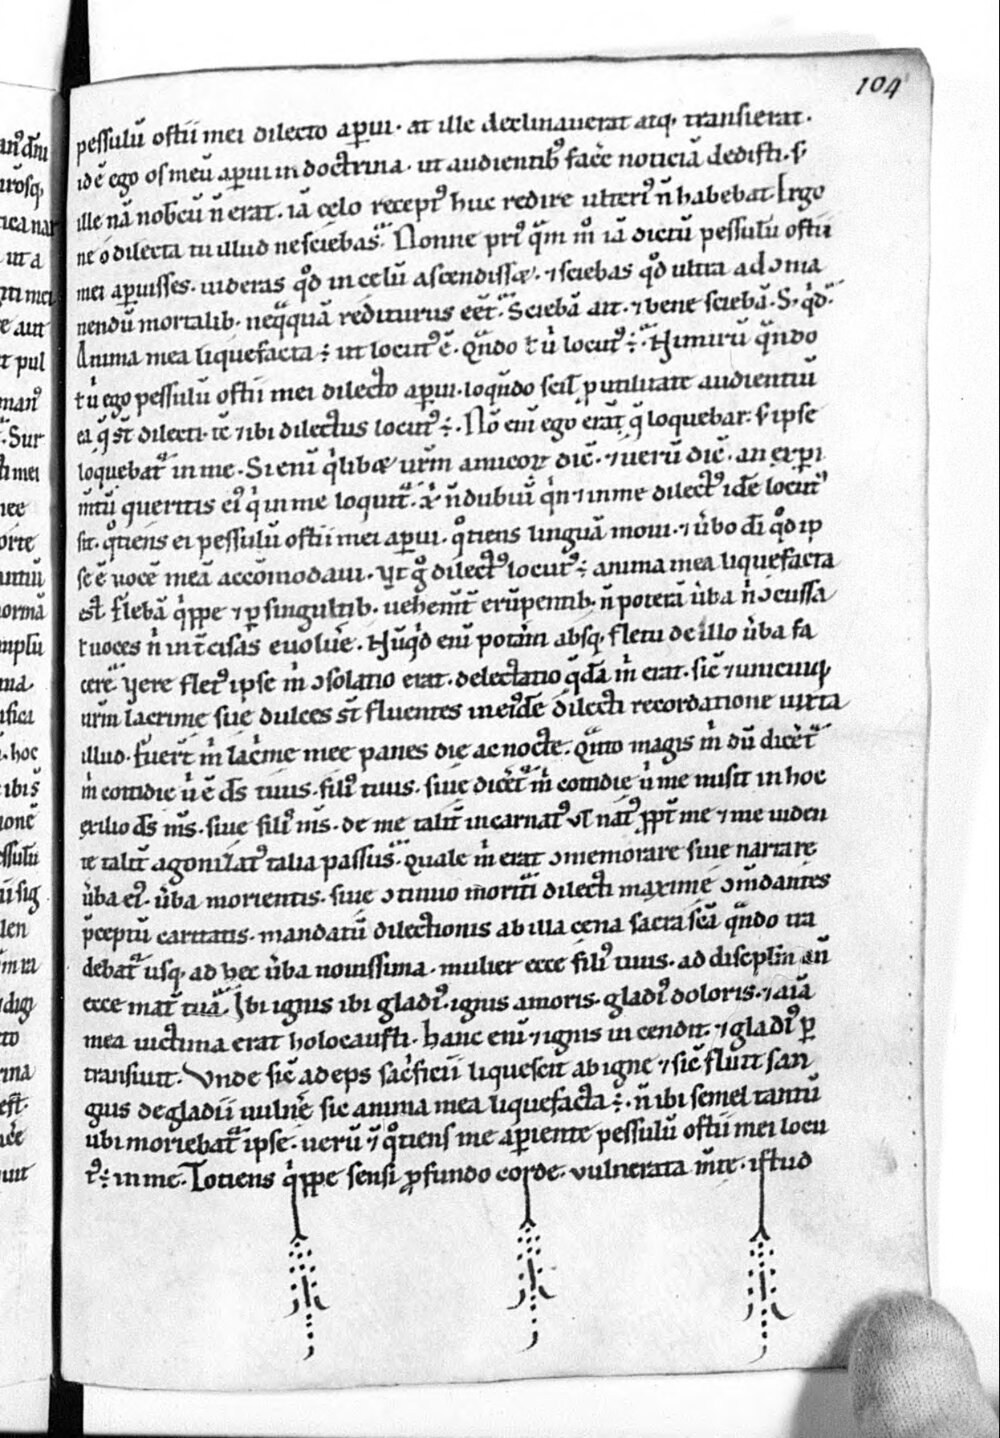 104
pessulū ostii mei dilecto aꝑui. at ille declinauerat atq; transierat.
id ē ego os meū aꝑui in doctrina. ut audientibꝰ facē noticiā dedisti. s;
ille nā nobcū n̄ erat. iā celo receptꝰ huc redire ulteriꝰ n̄ habebat. Ergo
ne o dilecta tu illud nesciebas. Nonne priꝰ q̄m m̊ iā dictū pessulū ostii
mei aꝑuisses. uideras qd̊ in celū ascendisset. ⁊ sciebas qd̊ ultra ad ꝯma
nendū mortalib; neq̄quā rediturus eēt. Sciebā ait. ⁊ bene sciebā. S; qd̓.
Anima mea liquefacta ÷ ut locutꝰ ē. Qn̄do t̄ u̓ locutꝰ ÷. Nimirū qn̄do
t̄ u̓ ego pessulū ostii mei dilecto aꝑui. loqn̄do scil ꝑ utilitate audientiū
ea q̄ st̄ dilecti. tc̄ ⁊ ibi dilectus locutꝰ ÷. Nō eni ego erā q̄ loquebar. s; ipse
loquebat᷑ in me. Si enī q̓libet ur̄m amicoꝝ dic̄. ⁊ uerū dic̄. an exꝑi
m̄tū queritis eiꝰ q̓ in me loquit᷑ xp̄c n̄ dubiū q̓n ⁊ in me dilectꝰ idē locutꝰ
sit. qͦtiens ei pessulū ostii mei aꝑui. qͦtiens linguā moui. ⁊ u̓bo dī qd̊ ip
se ē uocē meā accōmodaui. Vt g̊ dilectꝰ locutꝰ ÷ anima mea liquefacta
est. flebā q̓ppe ⁊ ꝑ singultib; uehemt̄ erūpentib; n̄ poterā u̓ba n̓ ꝯcussa
t̄ uoces n̓ int̄cisas euolue̓. Nūqd̓ eni potā̓m absq; fletu de illo u̓ba fa
cere. Vere fletꝰ ipse m̓ ꝯsolatio erat. delectatio q̄dā m̓ erat. sic̄ ⁊ unicuiq;
ur̄m lacrime sue dulces st̄ fluentes in eiꝰdē dilecti recordatione iuxta
illud. fuer̄t m̓ lac̓me mee panes die ac nocte. Qn̄to magis m̓ dū dicēt᷑
m̓ cotidie u̓ ē ds̄ tuus. filiꝰ tuus. siue dicēt᷑ m̓ cotidie u̓ me misit in hoc
exilio ds̄ ms̄. siue filiꝰ ms̄. de me talit̄ incarnatꝰ ul̄ natꝰ ꝓpt̄ me ⁊ me uiden
te talit̄ agonizatꝰ talia passus. Quale m̓ erat ꝯmemorare siue narrare
u̓ba eiꝰ. u̓ba morientis. siue ꝯtinuo morit᷑i dilecti maxime ꝯm̄dantes
p̄ceptū caritatis. mandatū dilectionis ab illa cena sacrasc̄ā qn̄do tra
debat᷑ usq; ad hec u̓ba nouissima. mulier ecce filiꝰ tuus. ad disciplm̄ aū
ecce mat̄ tua. Ibi ignis ibi gladiꝰ. ignis amoris. gladiꝰ doloris. ⁊ aīa
mea uictima erat holocausti. hanc enī ⁊ ignis incendit. ⁊ gladiꝰ ꝑ
transiuit. Vnde sic̄ adeps sac̓ficii liquescit ab igne ⁊ sic̄ fluit san
guis de gladii uulnē sic anima mea liquefacta ÷. n̄ ibi semel tantū
ubi moriebat᷑ ipse. uerū ⁊ qͦtiens me aꝑiente pessulū ostii mei locu
tꝰ ÷ in me. Totiens q̓ppe sensi ꝓfundo corde. uulnerata m̄te. istud